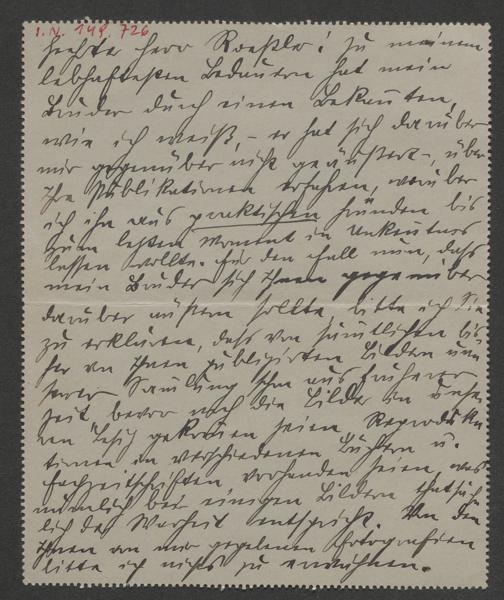 I.N. 149.726
Geehrter Herr Roeßler! Zu meinem
lebhaftesten Bedauern hat mein
Bruder durch einen Bekannten,
wie ich weiß, – er hat sich darüber
mir gegenüber nicht geäußert –, über
Ihre Publikationen erfahren, worüber
ich ihn aus praktischen Gründen bis
zum letzten Moment in Unkenntnis
lassen wollte. Für den Fall nun, dass
mein Bruder sich Ihnen gegenüber
darüber äußern sollte, bitte ich Sie
zu erklären, dass von sämtlichen bis
her von Ihnen publizirten Bildern uns
serer Samlung schon aus früherer
Zeit bevor noch die Bilder in unse
ren Besitz gekommen seien, Reproduk
tionen in verschiedenen Büchern u.
Fachzeitschriften vorhanden seien, was
nämlich bei einigen Bildern thatsäch
lich der Warheit entspricht. Von den
Ihnen von mir gegebenen Fotografien
bitte ich nichts zu erwähnen.